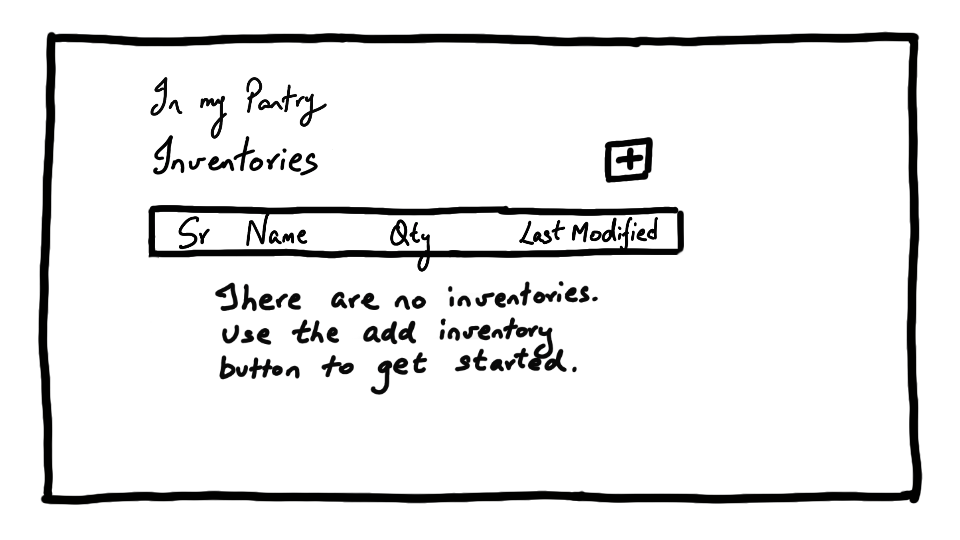 In my Pantry
Inventories +
Sr Name Qty Last Modified
There are no inventories.
Use the add inventory
button to get started.